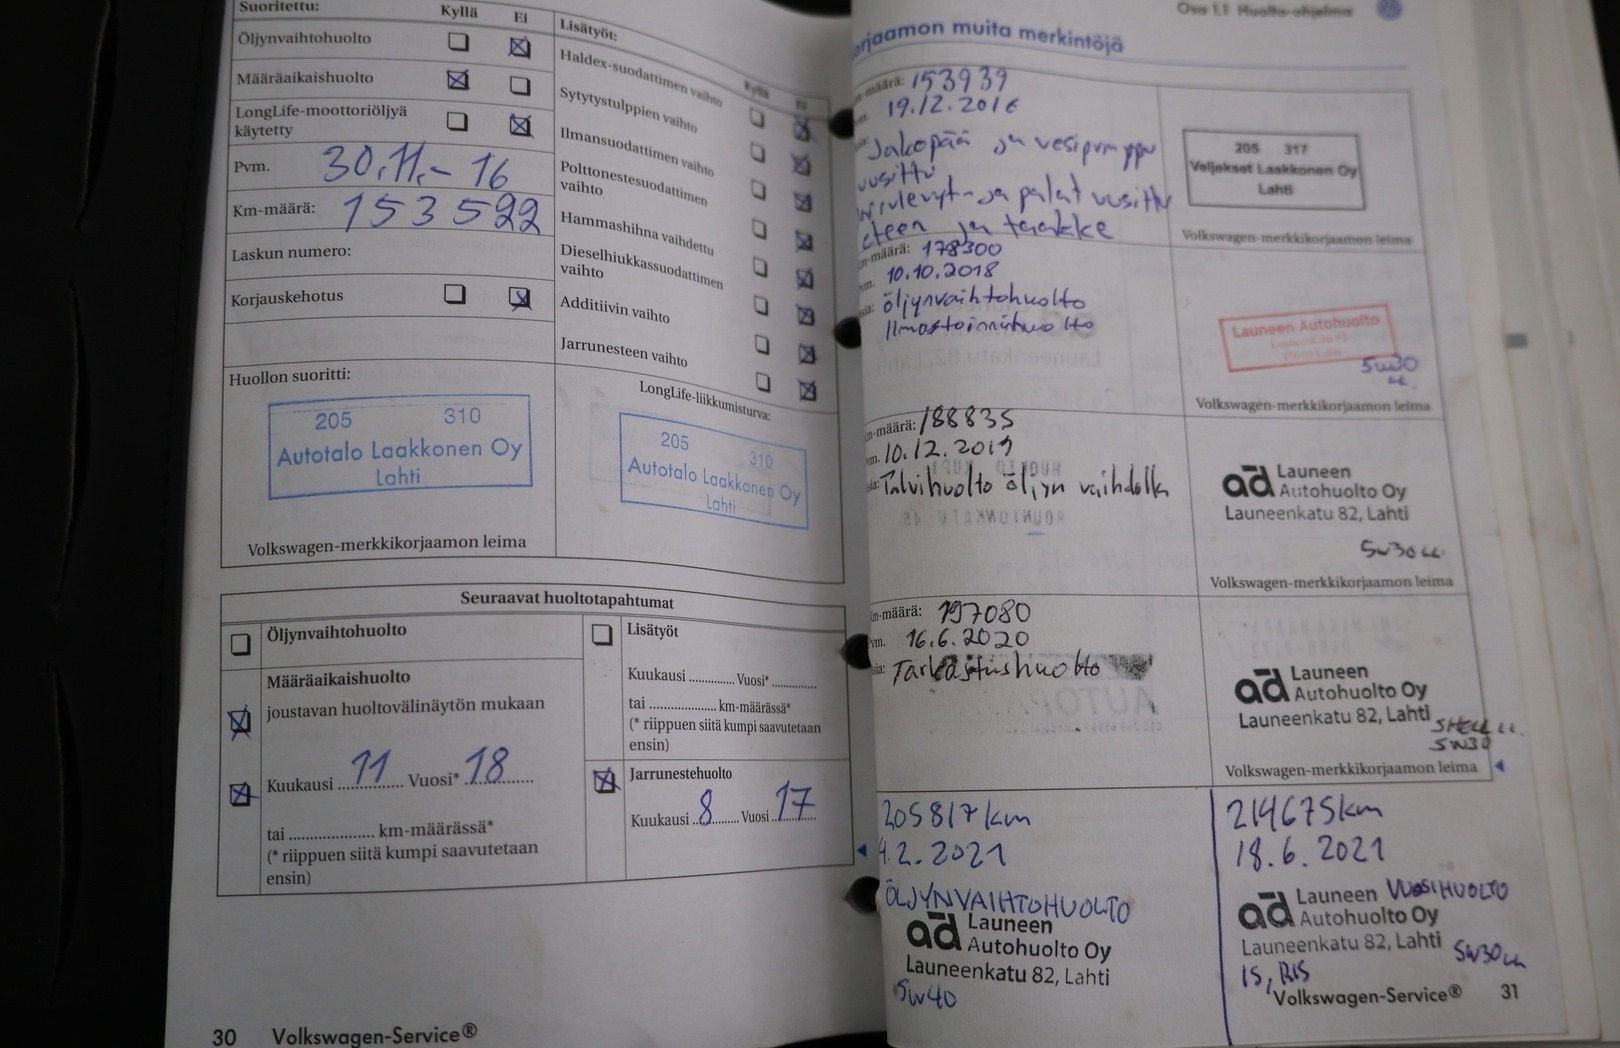 Suoritettu:
Kyllä
Ei
Öljynvaihtohuolto
Määräaikaishuolto
LongLife-moottoriöljyä
käytetty
Pvm. 30.11.-16
Km-määrä: 153522
Laskun numero:
Korjauskehotus
Huollon suoritti:
205 310
Autotalo Laakkonen Oy
Lahti
Volkswagen-merkkikorjaamon leima
Lisätyöt:
Kyllä
Ei
Haldex-suodattimen vaihto
Sytytystulppien vaihto
Ilmansuodattimen vaihto
Polttonestesuodattimen
vaihto
Hammashihna vaihdettu
Dieselhiukkassuodattimen
vaihto
Additiivin vaihto
Jarrunesteen vaihto
LongLife-liikkumisturva:
205 310
Autotalo Laakkonen Oy
Lahti
Seuraavat huoltotapahtumat
Öljynvaihtohuolto
Määräaikaishuolto
joustavan huoltovälinäytön mukaan
Kuukausi 11 Vuosi* 18
tai .................... km-määrässä*
(* riippuen siitä kumpi saavutetaan
ensin)
Lisätyöt
Kuukausi .............. Vuosi* ..............
tai .................... km-määrässä*
(* riippuen siitä kumpi saavutetaan
ensin)
Jarrunestehuolto
Kuukausi 8 Vuosi 17
30 Volkswagen-Service®
Osa 1.1 Huolto-ohjelma
orjaamon muita merkintöjä
m-määrä: 153939
vm. 19.12.2016
Jakopää ja vesipumppu
uusittu
ja palat uusittu
eteen ja taakke
205 317
Veljekset Laakkonen Oy
Lahti
Volkswagen-merkkikorjaamon leima
m-määrä: 178300
vm. 10.10.2018
sia: öljynvaihtohuolto
Ilmastointihuolto
Launeen Autohuolto
5W30
LL.
Volkswagen-merkkikorjaamon leima
m-määrä: 188835
vm. 10.12.2019
sia: Talvihuolto öljyn vaihdolla
ad Launeen
Autohuolto Oy
Launeenkatu 82, Lahti
5W30 LL.
Volkswagen-merkkikorjaamon leima
m-määrä: 197080
vm. 16.6.2020
sia: Tarkastushuolto
ad Launeen
Autohuolto Oy
Launeenkatu 82, Lahti
SHELL LL.
5W30
Volkswagen-merkkikorjaamon leima
205817km
4.2.2021
ÖLJYNVAIHTOHUOLTO
ad Launeen
Autohuolto Oy
Launeenkatu 82, Lahti
5W40
214675km
18.6.2021
ad Launeen VUOSIHUOLTO
Autohuolto Oy
Launeenkatu 82, Lahti 5W30 LL
IS, RIS
Volkswagen-Service® 31